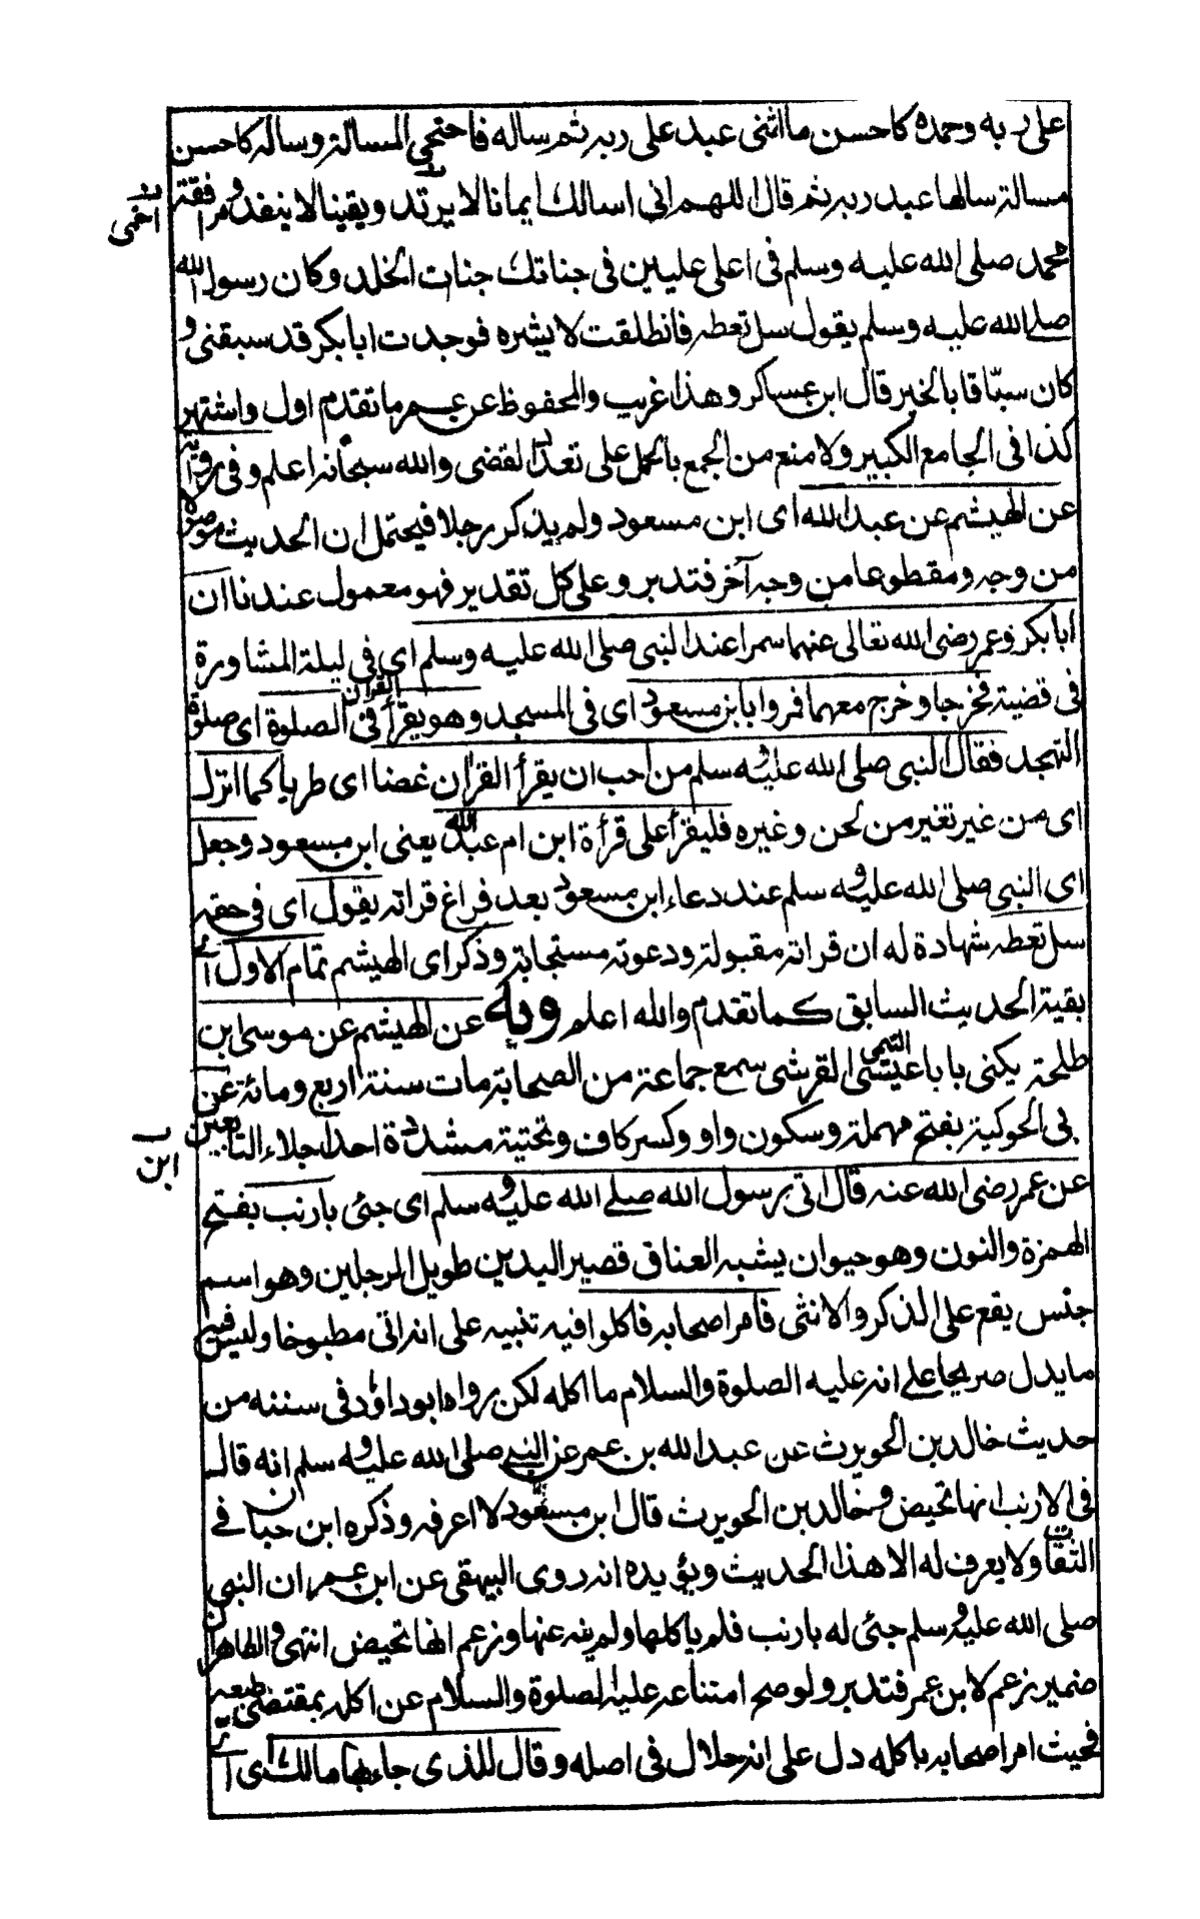 على ربه وحمده كاحسن ما اثنى عبد على ربه ثم ساله فاحتمى المسالة وساله كاحسن
مسالة سالها عبد ربه ثم قال اللهم انى اسالك ايمانا لا يرتد ويقينا لا ينفد ومرافقة
اخمى
محمد صلى الله عليه وسلم فى اعلى عليين فى جناتك جنات الخلد وكان رسول الله
صلى الله عليه وسلم يقول سل تعطه فانطلقت لابشره فوجدت ابابكر قد سبقنى و
كان سبّاقا بالخير قال ابن عساكر وهذا غريب والمحفوظ عن عمر ما تقدم اول واشتهر
كذا فى الجامع الكبير ولا منع من الجمع بالحمل على تعدد القضى والله سبحانه اعلم وفى رواية
عن الهيثم عن عبد الله اى ابن مسعود ولم يذكر رجلا فيحتمل ان الحديث موصولا
من وجه ومقطوعا من وجه آخر فتدبر وعلى كل تقدير فهو معمول عندنا ان
ابابكر وعمر رضى الله تعالى عنهما سمرا عند النبى صلى الله عليه وسلم اى فى ليلة المشاورة
فى قضية فخرجا وخرج معهما فمروا بابن مسعود اى فى المسجد وهو يقرأ القران فى الصلوة اى صلوة
التهجد فقال النبى صلى الله عليه وسلم من احب ان يقرأ القران غضا اى طريا كما انزل
اى من غير تغير من لحن وغيره فليقرأ على قرأة ابن ام عبد الله يعنى ابن مسعود وجعل
اى النبى صلى الله عليه وسلم عند دعاء ابن مسعود بعد فراغ قراته يقول اى فى حقه
سل تعطه شهادة له ان قراته مقبولة ودعوته مستجابة وذكر اى الهيثم تمام الاول اى
بقية الحديث السابق كما تقدم والله اعلم وبه عن الهيثم عن موسى ابن
طلحة يكنى بابا عيسى التيمى القرشى سمع جماعة من الصحابة مات سنة اربع ومائة عن
بى الحوكية بفتح مهملة وسكون واو وكسر كاف وتحتية مشددة احد اجلاء التابعين
ابن
عن عمر رضى الله عنه قال اتى برسول الله صلى الله عليه وسلم اى جئى بارنب بفتح
الهمزة والنون وهو حيوان يشبه العناق قصير اليدين طويل الرجلين وهو اسم
جنس يقع على الذكر والانثى فامر اصحابه فاكلوا فيه تنبيه على انه اتى مطبوخا وليس فيه
ما يدل صريحا على انه عليه الصلوة والسلام ما اكله لكن رواه ابو داؤد فى سننه من
حديث خالد بن الحويرث عن عبد الله بن عمر عن النبى صلى الله عليه وسلم انه قال
فى الارنب انها تحيض وخالد بن الحويرث قال ابن مسعود لا اعرفه وذكره ابن حبان فى
الثقات ولا يعرف له الا هذا الحديث ويؤيده انه روى البيهقى عن ابن عمر ان النبى
صلى الله عليه وسلم جئى له بارنب فلم ياكلها ولم ينه عنها وزعم انها تحيض انتهى والظاهر ان
ضمير زعم لابن عمر فتدبر ولو صح امتناعه عليه الصلوة والسلام عن اكله بمقتضى طبعه
فحيث امر اصحابه باكله دل على انه حلال فى اصله وقال للذى جاء بها مالك اى